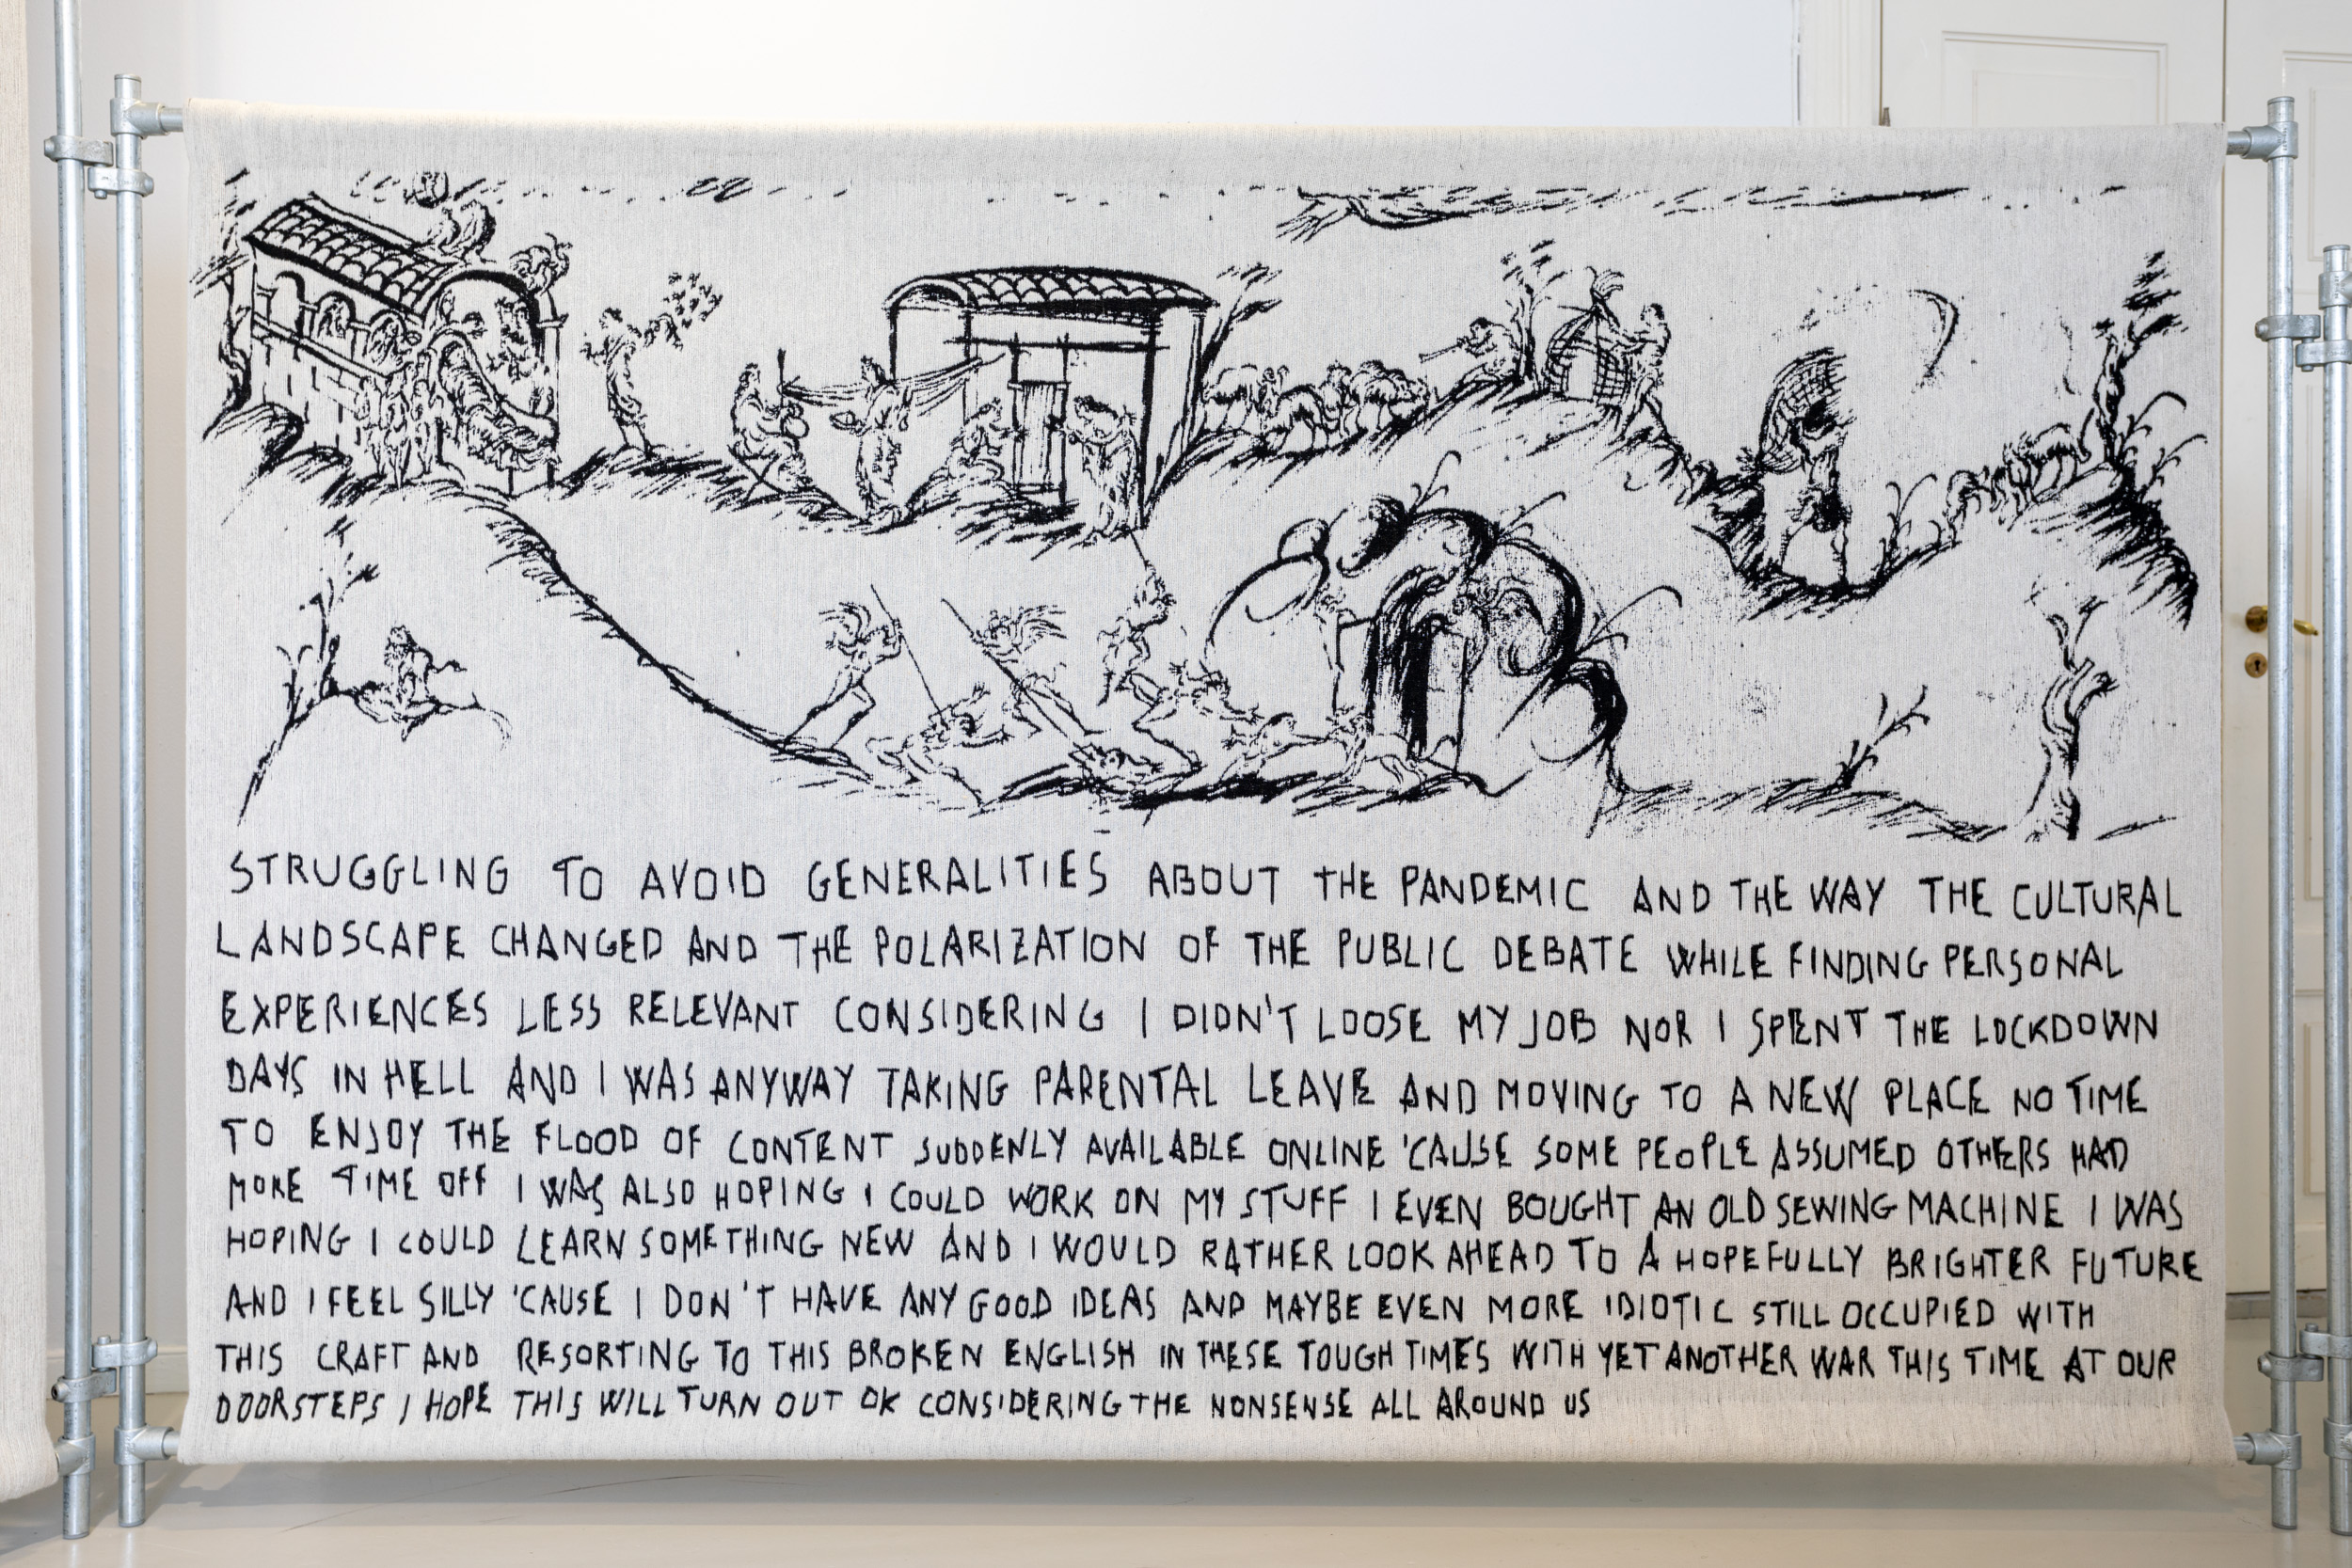 STRUGGLING TO AVOID GENERALITIES ABOUT THE PANDEMIC AND THE WAY THE CULTURAL
LANDSCAPE CHANGED AND THE POLARIZATION OF THE PUBLIC DEBATE WHILE FINDING PERSONAL
EXPERIENCES LESS RELEVANT CONSIDERING I DIDN'T LOOSE MY JOB NOR I SPENT THE LOCKDOWN
DAYS IN HELL AND I WAS ANYWAY TAKING PARENTAL LEAVE AND MOVING TO A NEW PLACE NO TIME
TO ENJOY THE FLOOD OF CONTENT SUDDENLY AVAILABLE ONLINE 'CAUSE SOME PEOPLE ASSUMED OTHERS HAD
MORE TIME OFF I WAS ALSO HOPING I COULD WORK ON MY STUFF I EVEN BOUGHT AN OLD SEWING MACHINE I WAS
HOPING I COULD LEARN SOMETHING NEW AND I WOULD RATHER LOOK AHEAD TO A HOPEFULLY BRIGHTER FUTURE
AND I FEEL SILLY 'CAUSE I DON'T HAVE ANY GOOD IDEAS AND MAYBE EVEN MORE IDIOTIC STILL OCCUPIED WITH
THIS CRAFT AND RESORTING TO THIS BROKEN ENGLISH IN THESE TOUGH TIMES WITH YET ANOTHER WAR THIS TIME AT OUR
DOORSTEPS I HOPE THIS WILL TURN OUT OK CONSIDERING THE NONSENSE ALL AROUND US